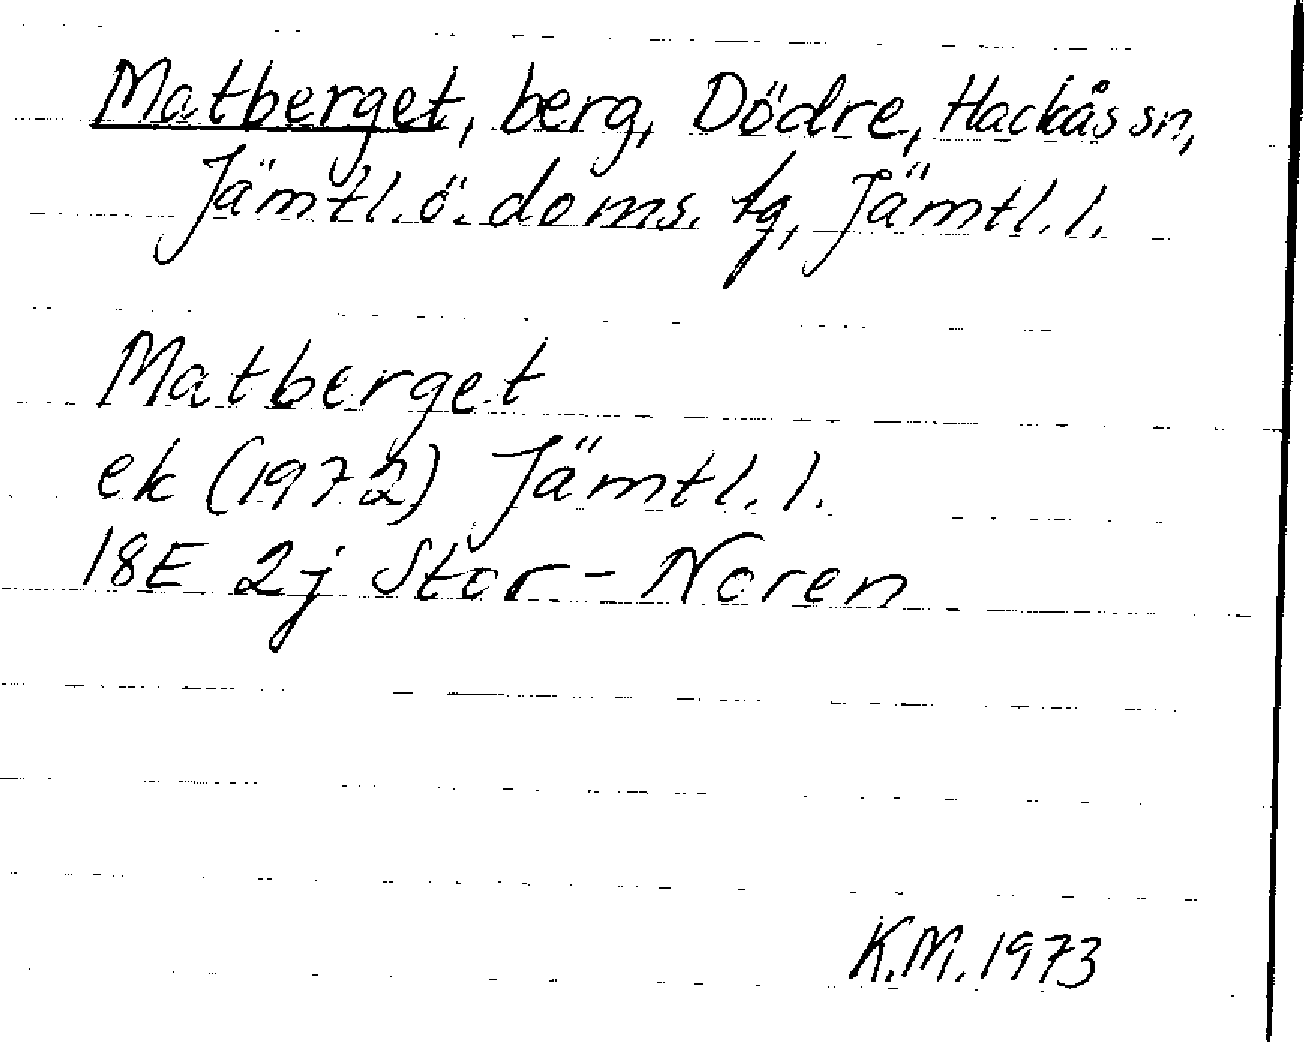 Matberget, berg, Dödre, Hackås sn,
Jämtl. ö. doms. tg, Jämtl. l.
Matberget
ek (1972) Jämtl. l.
18E 2j Stor-Noren
K.M. 1973